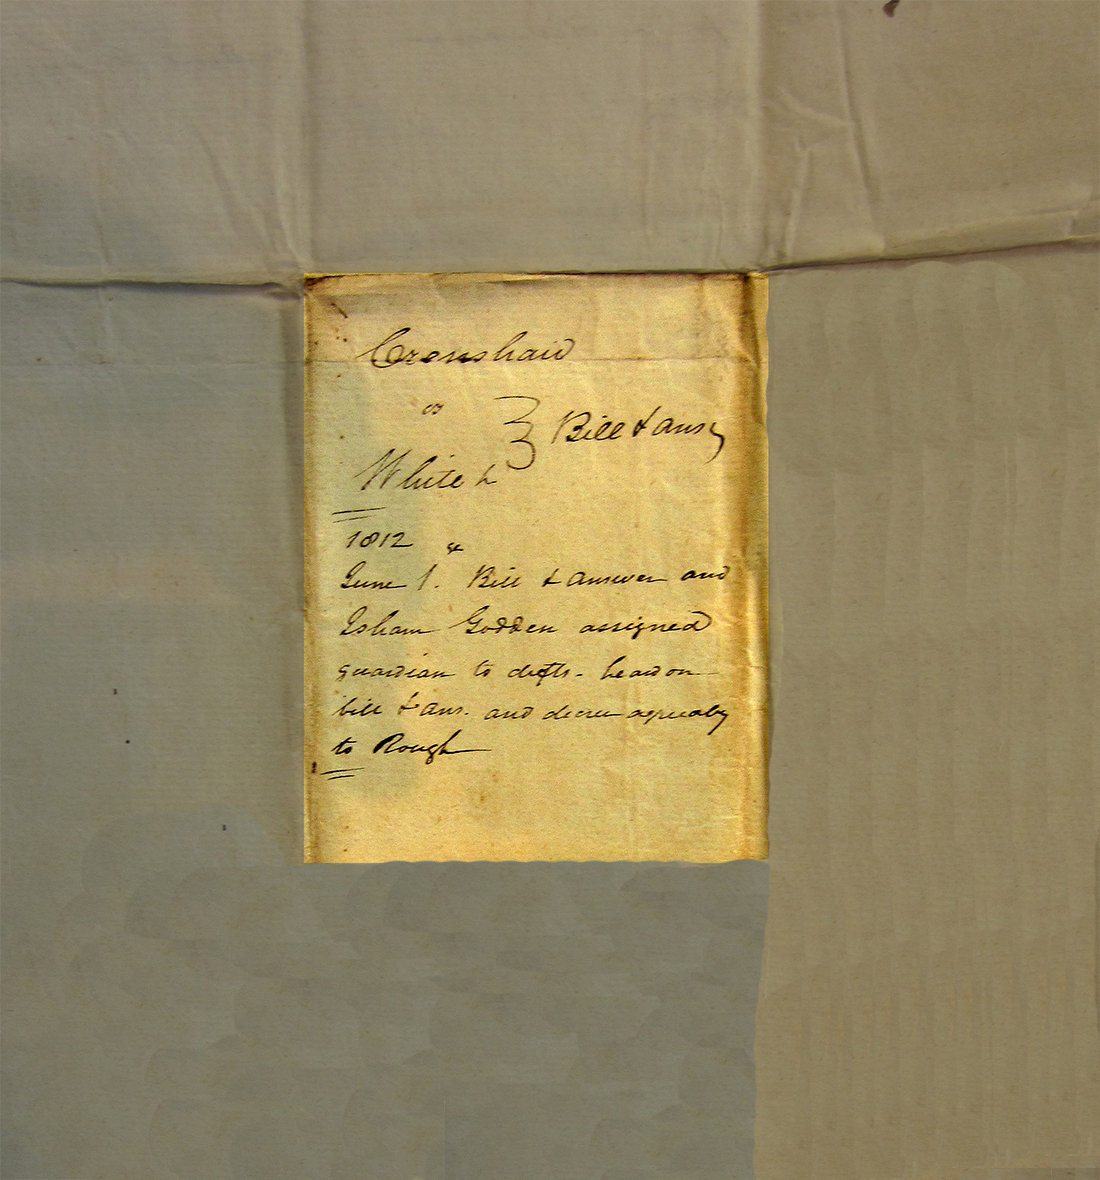 Crenshaw
vs } Bill & ans
White &
1812
June 1. Bill & answer and
Isham Godden assigned
guardian to defts. heard on
bill & ans. and decree agreeably
to Rough